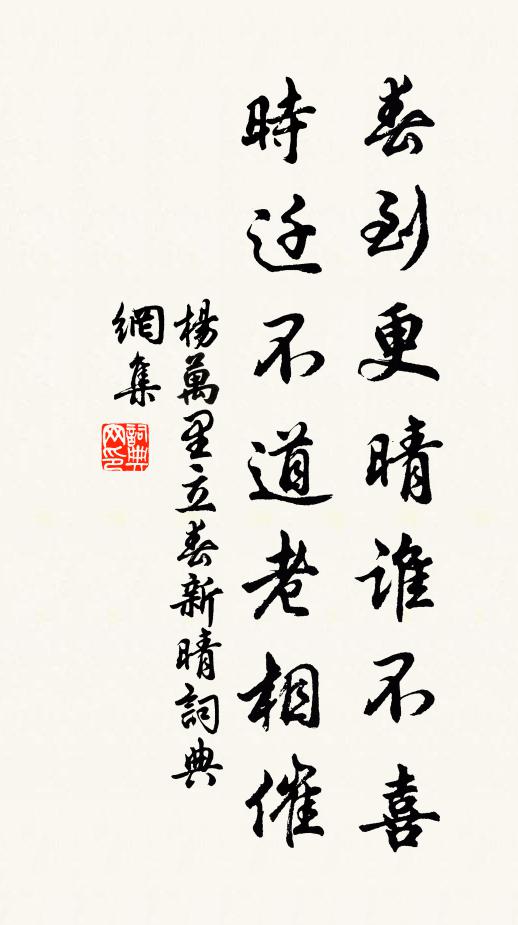 春到更晴誰不喜
時迁不道老相催
楊萬里立春新晴詞典
網集
詞典
网印